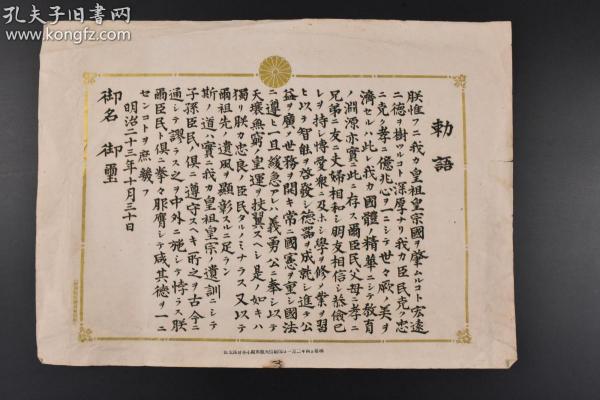 孔夫子旧书网
www.kongfz.com
勅語
朕惟フニ我カ皇祖皇宗國ヲ肇ムルコト宏遠
ニ德ヲ樹ツルコト深厚ナリ我カ臣民克ク忠
ニ克ク孝ニ億兆心ヲ一ニシテ世々厥ノ美ヲ
濟セルハ此レ我カ國體ノ精華ニシテ敎育
ノ淵源亦實ニ此ニ存ス爾臣民父母ニ孝ニ
兄弟ニ友ニ夫婦相和シ朋友相信シ恭儉己
レヲ持シ博愛衆ニ及ホシ學ヲ修メ業ヲ習
ヒ以テ智能ヲ啓發シ德器ヲ成就シ進テ公
益ヲ廣メ世務ヲ開キ常ニ國憲ヲ重シ國法
ニ遵ヒ一旦緩急アレハ義勇公ニ奉シ以テ
天壤無窮ノ皇運ヲ扶翼スヘシ是ノ如キハ
獨リ朕カ忠良ノ臣民タルノミナラス又以テ
爾祖先ノ遺風ヲ顯彰スルニ足ラン
斯ノ道ハ實ニ我カ皇祖皇宗ノ遺訓ニシテ
子孫臣民ノ倶ニ遵守スヘキ所之ヲ古今ニ
通シテ謬ラス之ヲ中外ニ施シテ悖ラス朕
爾臣民ト倶ニ拳々服膺シテ咸其德ヲ一ニ
センコトヲ庶幾フ
明治二十三年十月三十日
御名 御璽